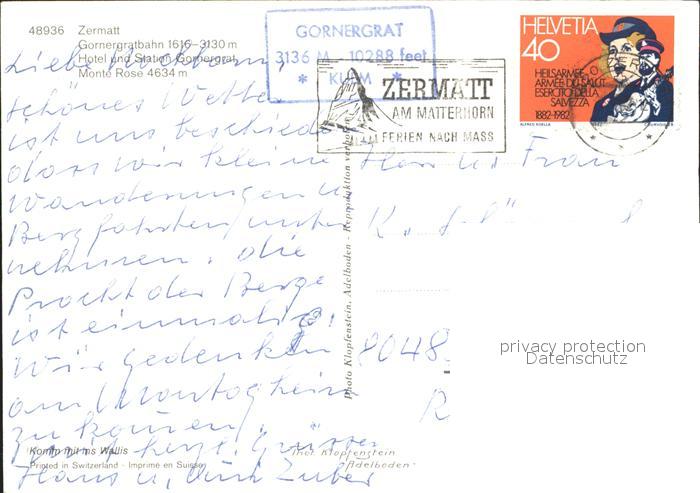 48936 Zermatt
Gornergratbahn 1616-3130 m
Hotel und Station Gornergrat
Monte Rose 4634 m
GORNERGRAT
3136 M 10288 feet
* KULM *
ZERMATT
AM MATTERHORN
FERIEN NACH MASS
HELVETIA
40
HEILSARMEE
ARMEE DU SALUT
ESERCITO DELLA
SALVEZZA
1882-1982
Liebe
schönes Wetter
ist uns beschieden
dass wir kleine
Wanderungen u
Bergfahrten unter
nehmen. die
Pracht der Berge
ist einmalig.
Wir gedenken
am Montag heim
zu kommen.
herzl. Grüsse
Hans u.
Herr u. Frau
8048
R
Photo Klopfenstein, Adelboden - Reproduktion verboten
Komm mit ins Wallis
Printed in Switzerland - Imprimé en Suisse
Klopfenstein
Adelboden
privacy protection
Datenschutz